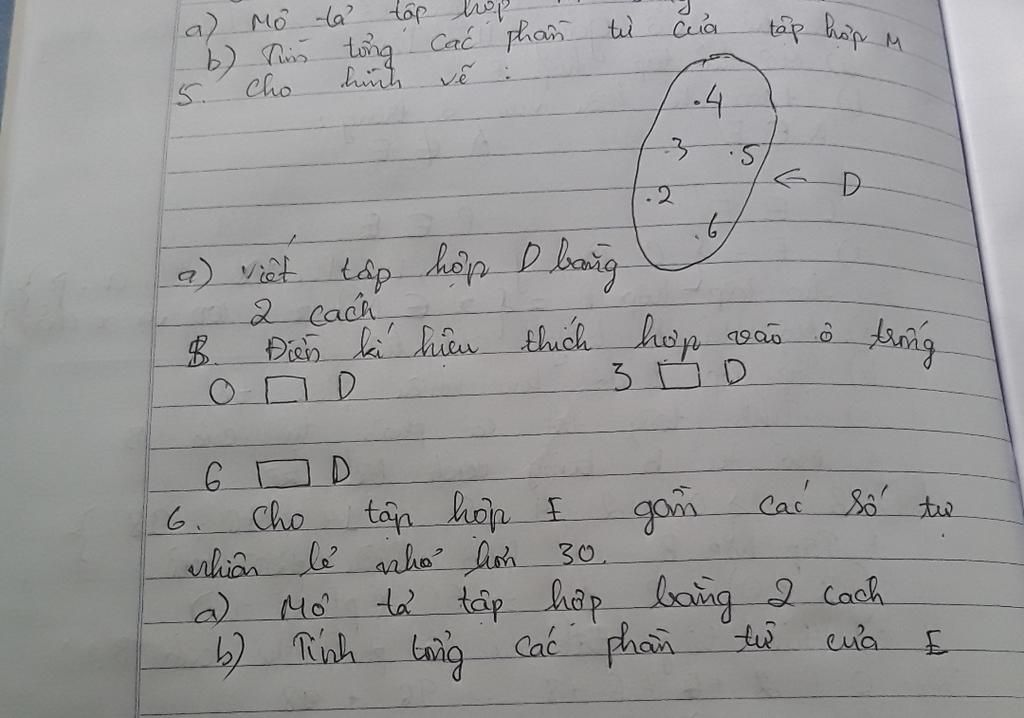 a) Mô tả tập hợp
b) Tính tổng các phần tử của tập hợp M
5. Cho hình vẽ :
.4
.3 .5
← D
.2
.6
a) Viết tập hợp D bằng
2 cách
B. Điền kí hiệu thích hợp vào ô trống
0 □ D 3 □ D
6 □ D
6. Cho tập hợp E gồm các số tự
nhiên lẻ nhỏ hơn 30.
a) Mô tả tập hợp bằng 2 cach
b) Tính tổng các phần tử của E